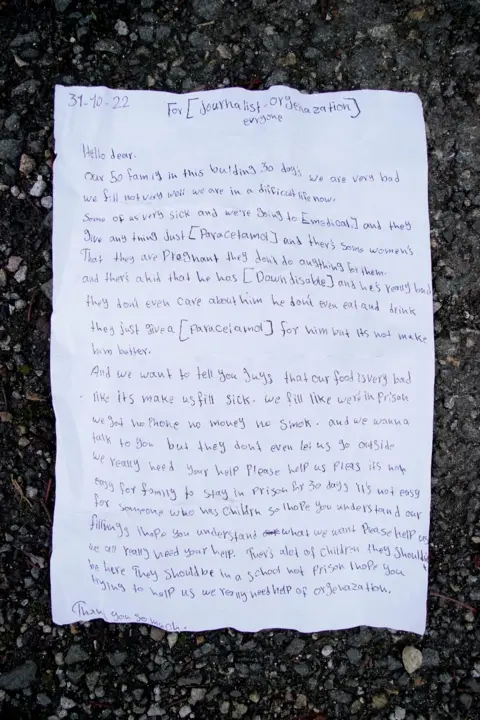 31-10-22
For [journalist-orgenazation]
evryone
Hello dear.
Our 50 family in this building 30 days we are very bad
we fill not very well we are in a difficult life now.
Some of us very sick and we're going to [medical] and they
give any thing just [Paracetamol] and there's soms women's
That they are Pregnant they don't do any thing for them.
and there's a kid that he has [Down disable] and he's really bad
they dont even care about him he don't even eat and drink
they just give a [Paracetamol] for him but its not make
him better.
And we want to tell you guys that our food is very bad
like its make us fill sick. we fill like we're in prison
we got no Phone no money no smok. and we wanna
talk to you but they don't even let us go outside
we really need your help Please help us Pleas its not
easy for family to stay in Prison for 30 days It's not easy
for someone who has children so I hope you understand our
fillings I hope you understand what we want Please help us
we all really need your help. There's alot of children they should
be here They should be in a school not Prison I hope you
trying to help us we really need help of orgenazation.
Thank you so much.